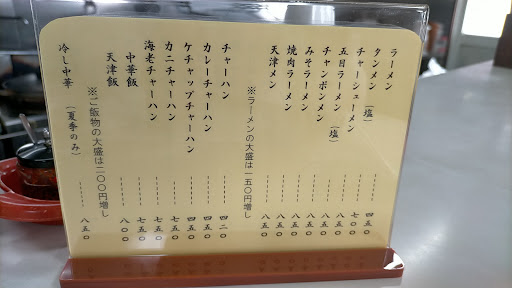 ラーメン 四五〇
タンメン（塩） 七〇〇
チャーシューメン 八五〇
五目ラーメン（塩） 八五〇
チャンポンメン 八五〇
みそラーメン 八五〇
焼肉ラーメン 八五〇
天津メン 八五〇
※ラーメンの大盛は一五〇円増し
チャーハン 四二〇
カレーチャーハン 四五〇
ケチャップチャーハン 四五〇
カニチャーハン 七五〇
海老チャーハン 七五〇
中華飯 七五〇
天津飯 八〇〇
※ご飯物の大盛は二〇〇円増し
冷し中華（夏季のみ） 八五〇